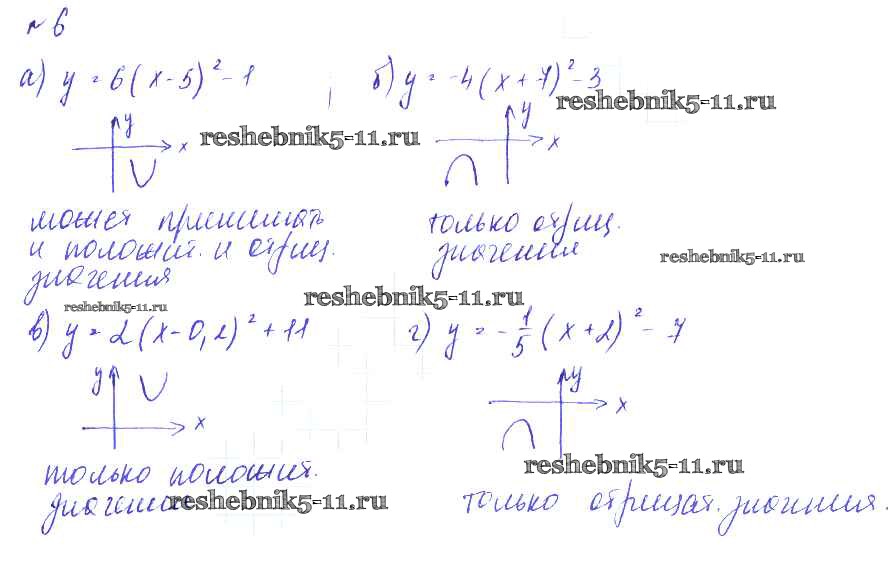 № 6
а) y = 6(x-5)² - 1
б) y = -4(x+7)² - 3
reshebnik5-11.ru
y
x
reshebnik5-11.ru
y
x
может принимать
и положит. и отриц.
значения
только отриц.
значения
reshebnik5-11.ru
reshebnik5-11.ru
reshebnik5-11.ru
в) y = 2(x-0,2)² + 11
г) y = -1/5(x+2)² - 7
y
x
y
x
только положит.
значения
reshebnik5-11.ru
reshebnik5-11.ru
только отрицат. значения.